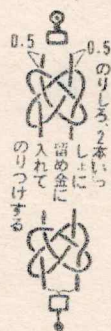 0.5
0.5
のりしろ、2本いっ
しょに
留め金に
入れて
のりつけする